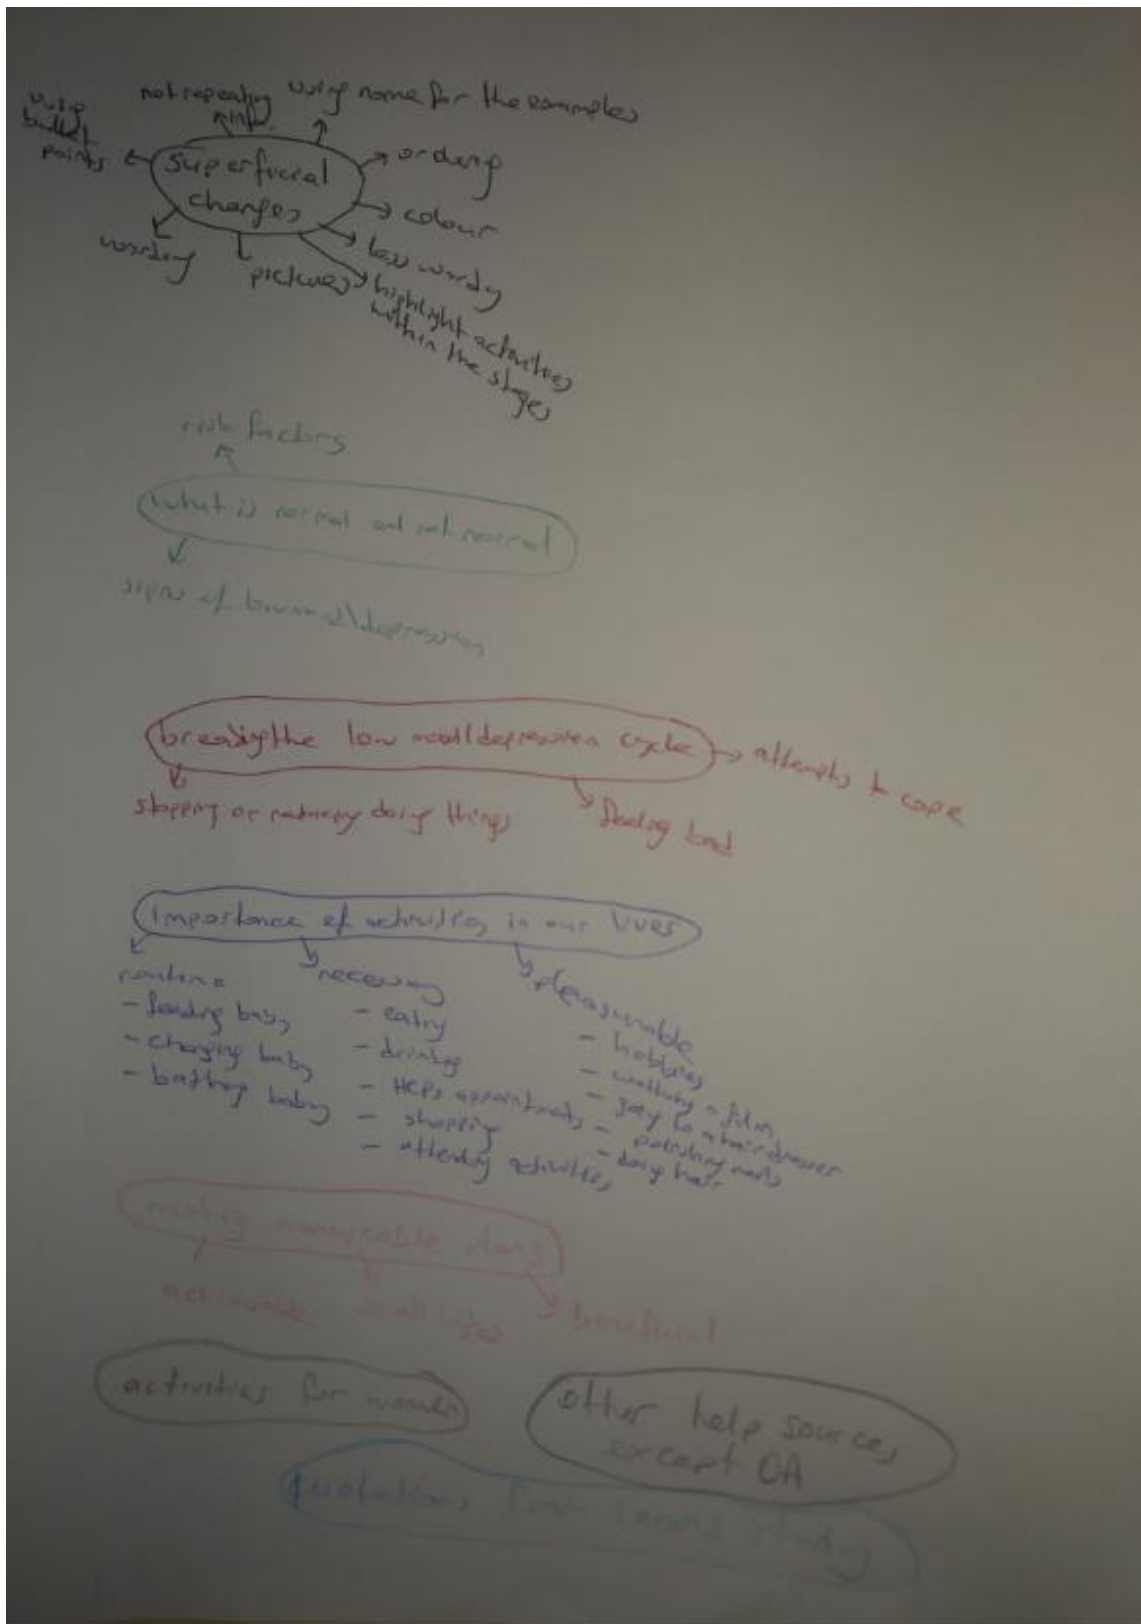 not repeating
info.
using name for the examples
using
bullet
points
superficial
changes
ordering
colour
less wordy
highlight activities
within the stages
pictures
wording
risk factors
what is normal and not normal
signs of low mood/depression
breaking the low mood/depression cycle
attempts to cope
stopping or reducing doing things
feeling bad
importance of activities in our lives
routine
- feeding baby
- changing baby
- bathing baby
necessary
- eating
- drinking
- HCPs appointments
- shopping
- attending activities
pleasurable
- hobbies
- watching a film
- going to a hair dresser
- polishing nails
- doing hair
making manageable plans
achievable
beneficial
activities for women
other help sources
except
quotations from second study